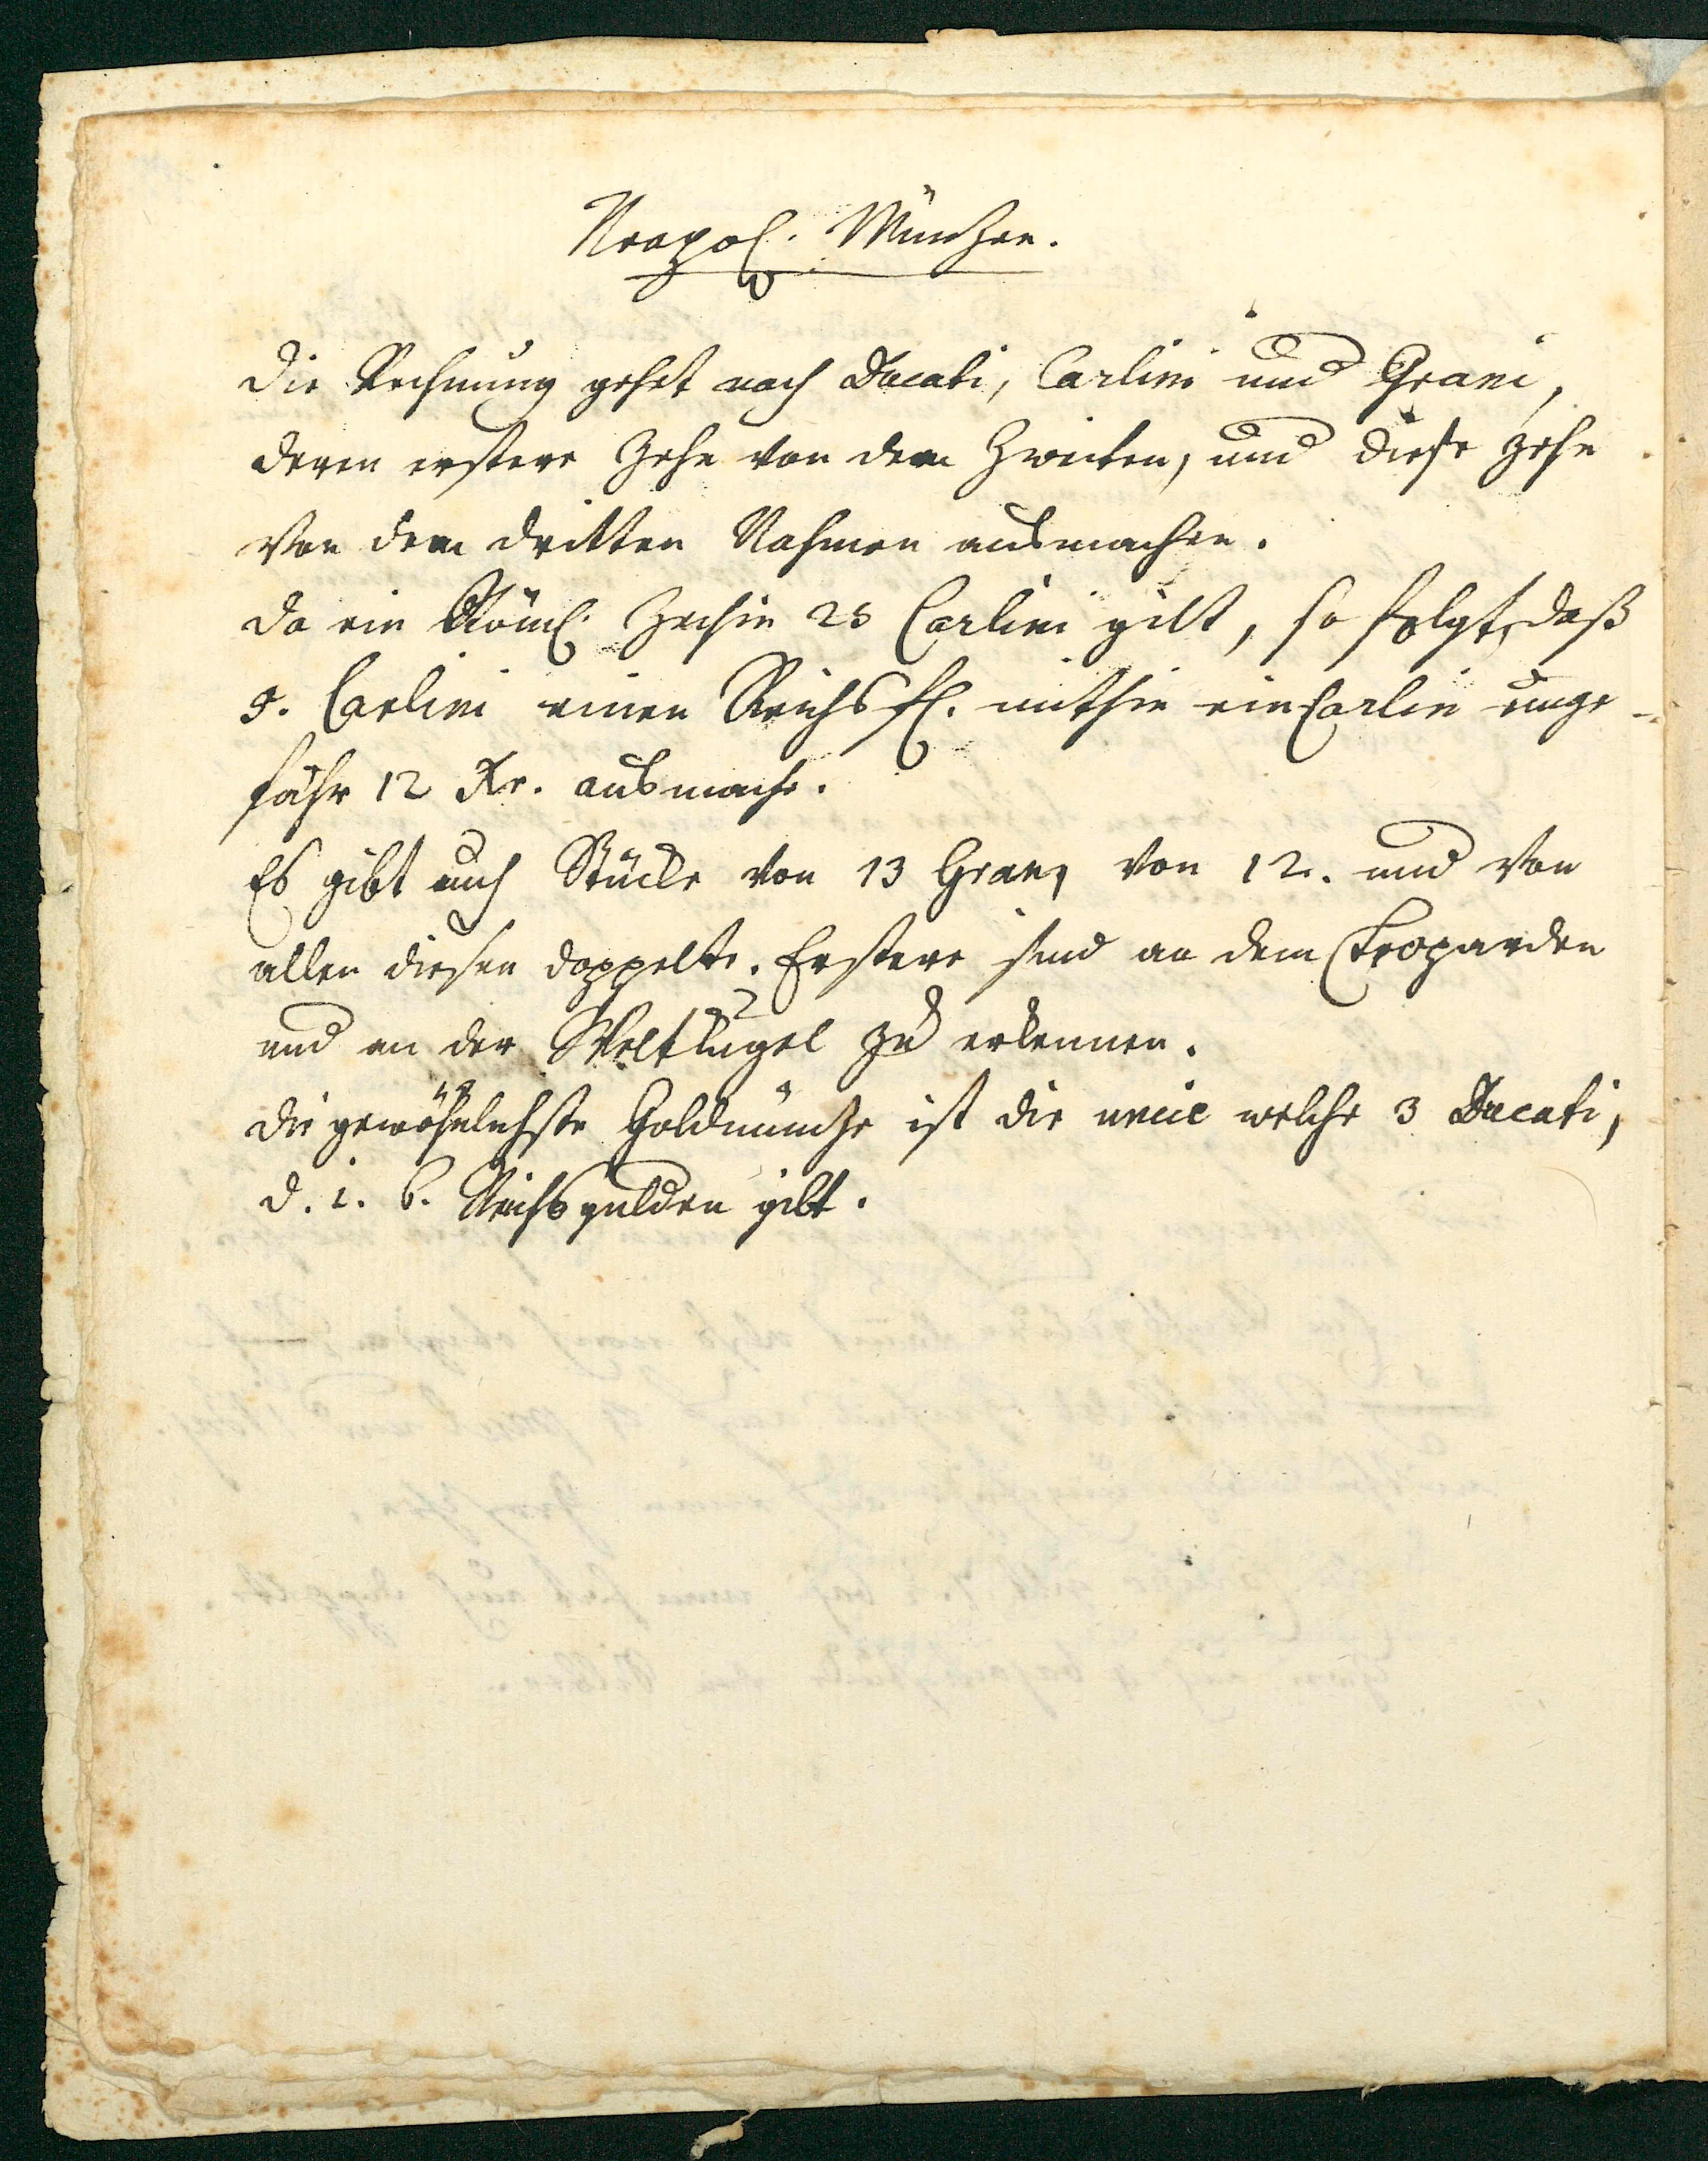 Neapol. Münzen.
Die Rechnung gehet nach Ducati, Carlini und Grani,
deren erstere Zehn von dem Zweiten, und diese zehn
von dem dritten Nahmen ausmachen.
Da ein Röml. Zechin 25 Carlini gilt, so folgt, daß
5. Carlini einen Reichs fl. mithin ein Carlin unge-
fähr 12 Xr. ausmache.
Es gibt auch Stücke von 13 Gran, von 12. und von
allen diesen doppelte. Erstere sind an dem Leoparden
und an der Weltkugel zu erkennen.
Die gewöhnlichste Goldmünze ist die welche 3 Ducati,
d. i. 6. Reichsgulden gilt.